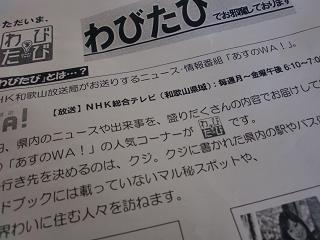 ただいま、
わびたび
わびたび
でお邪魔しております
わびたび」とは…?
NHK和歌山放送局がお送りするニュース・情報番組「あすのWA!」。
【放送】NHK総合テレビ(和歌山県域):毎週月~金曜午後6:10~7:0
A!
日、県内のニュースや出来事を、盛りだくさんの内容でお届けして
の「あすのWA!」の人気コーナーが わびたび です。
行き先を決めるのは、クジ。クジに書かれた県内の駅やバス
ドブックには載っていないマル秘スポットや、
界わいに住む人々を訪ねます。